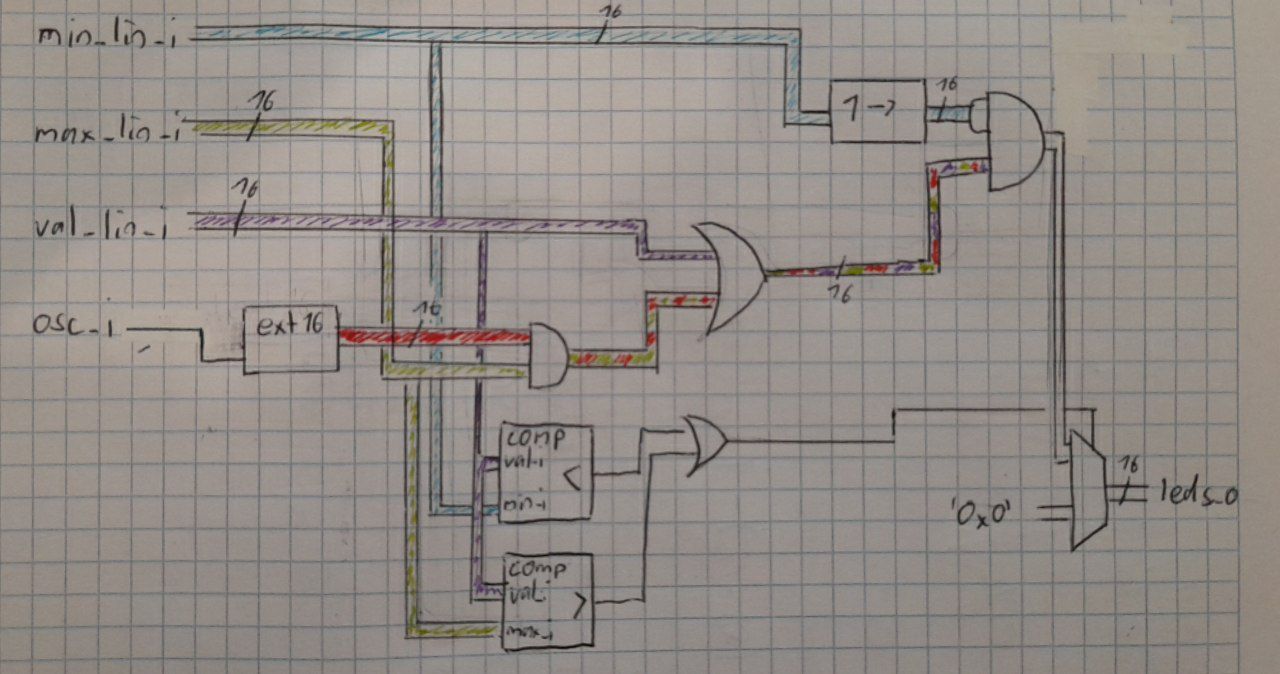 min_lin_i
16
max_lin_i
16
val_lin_i
16
osc_i
ext 16
16
1 →
16
16
comp
val_i
<
min_i
comp
val_i
>
max_i
'0x0'
16
leds_o